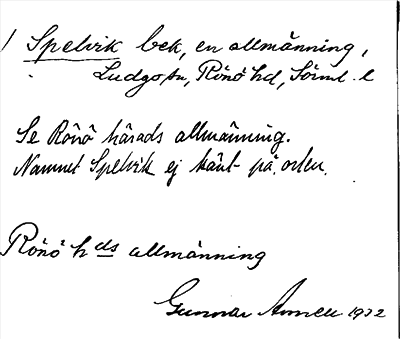 / Spelvik bek, en allmänning,
Ludgo sn, Rönö hd, Sörml. l
Se Rönö härads allmänning.
Namnet Spelvik ej känt på orten.
Rönö hds allmänning
Gunnar Ameen 1932